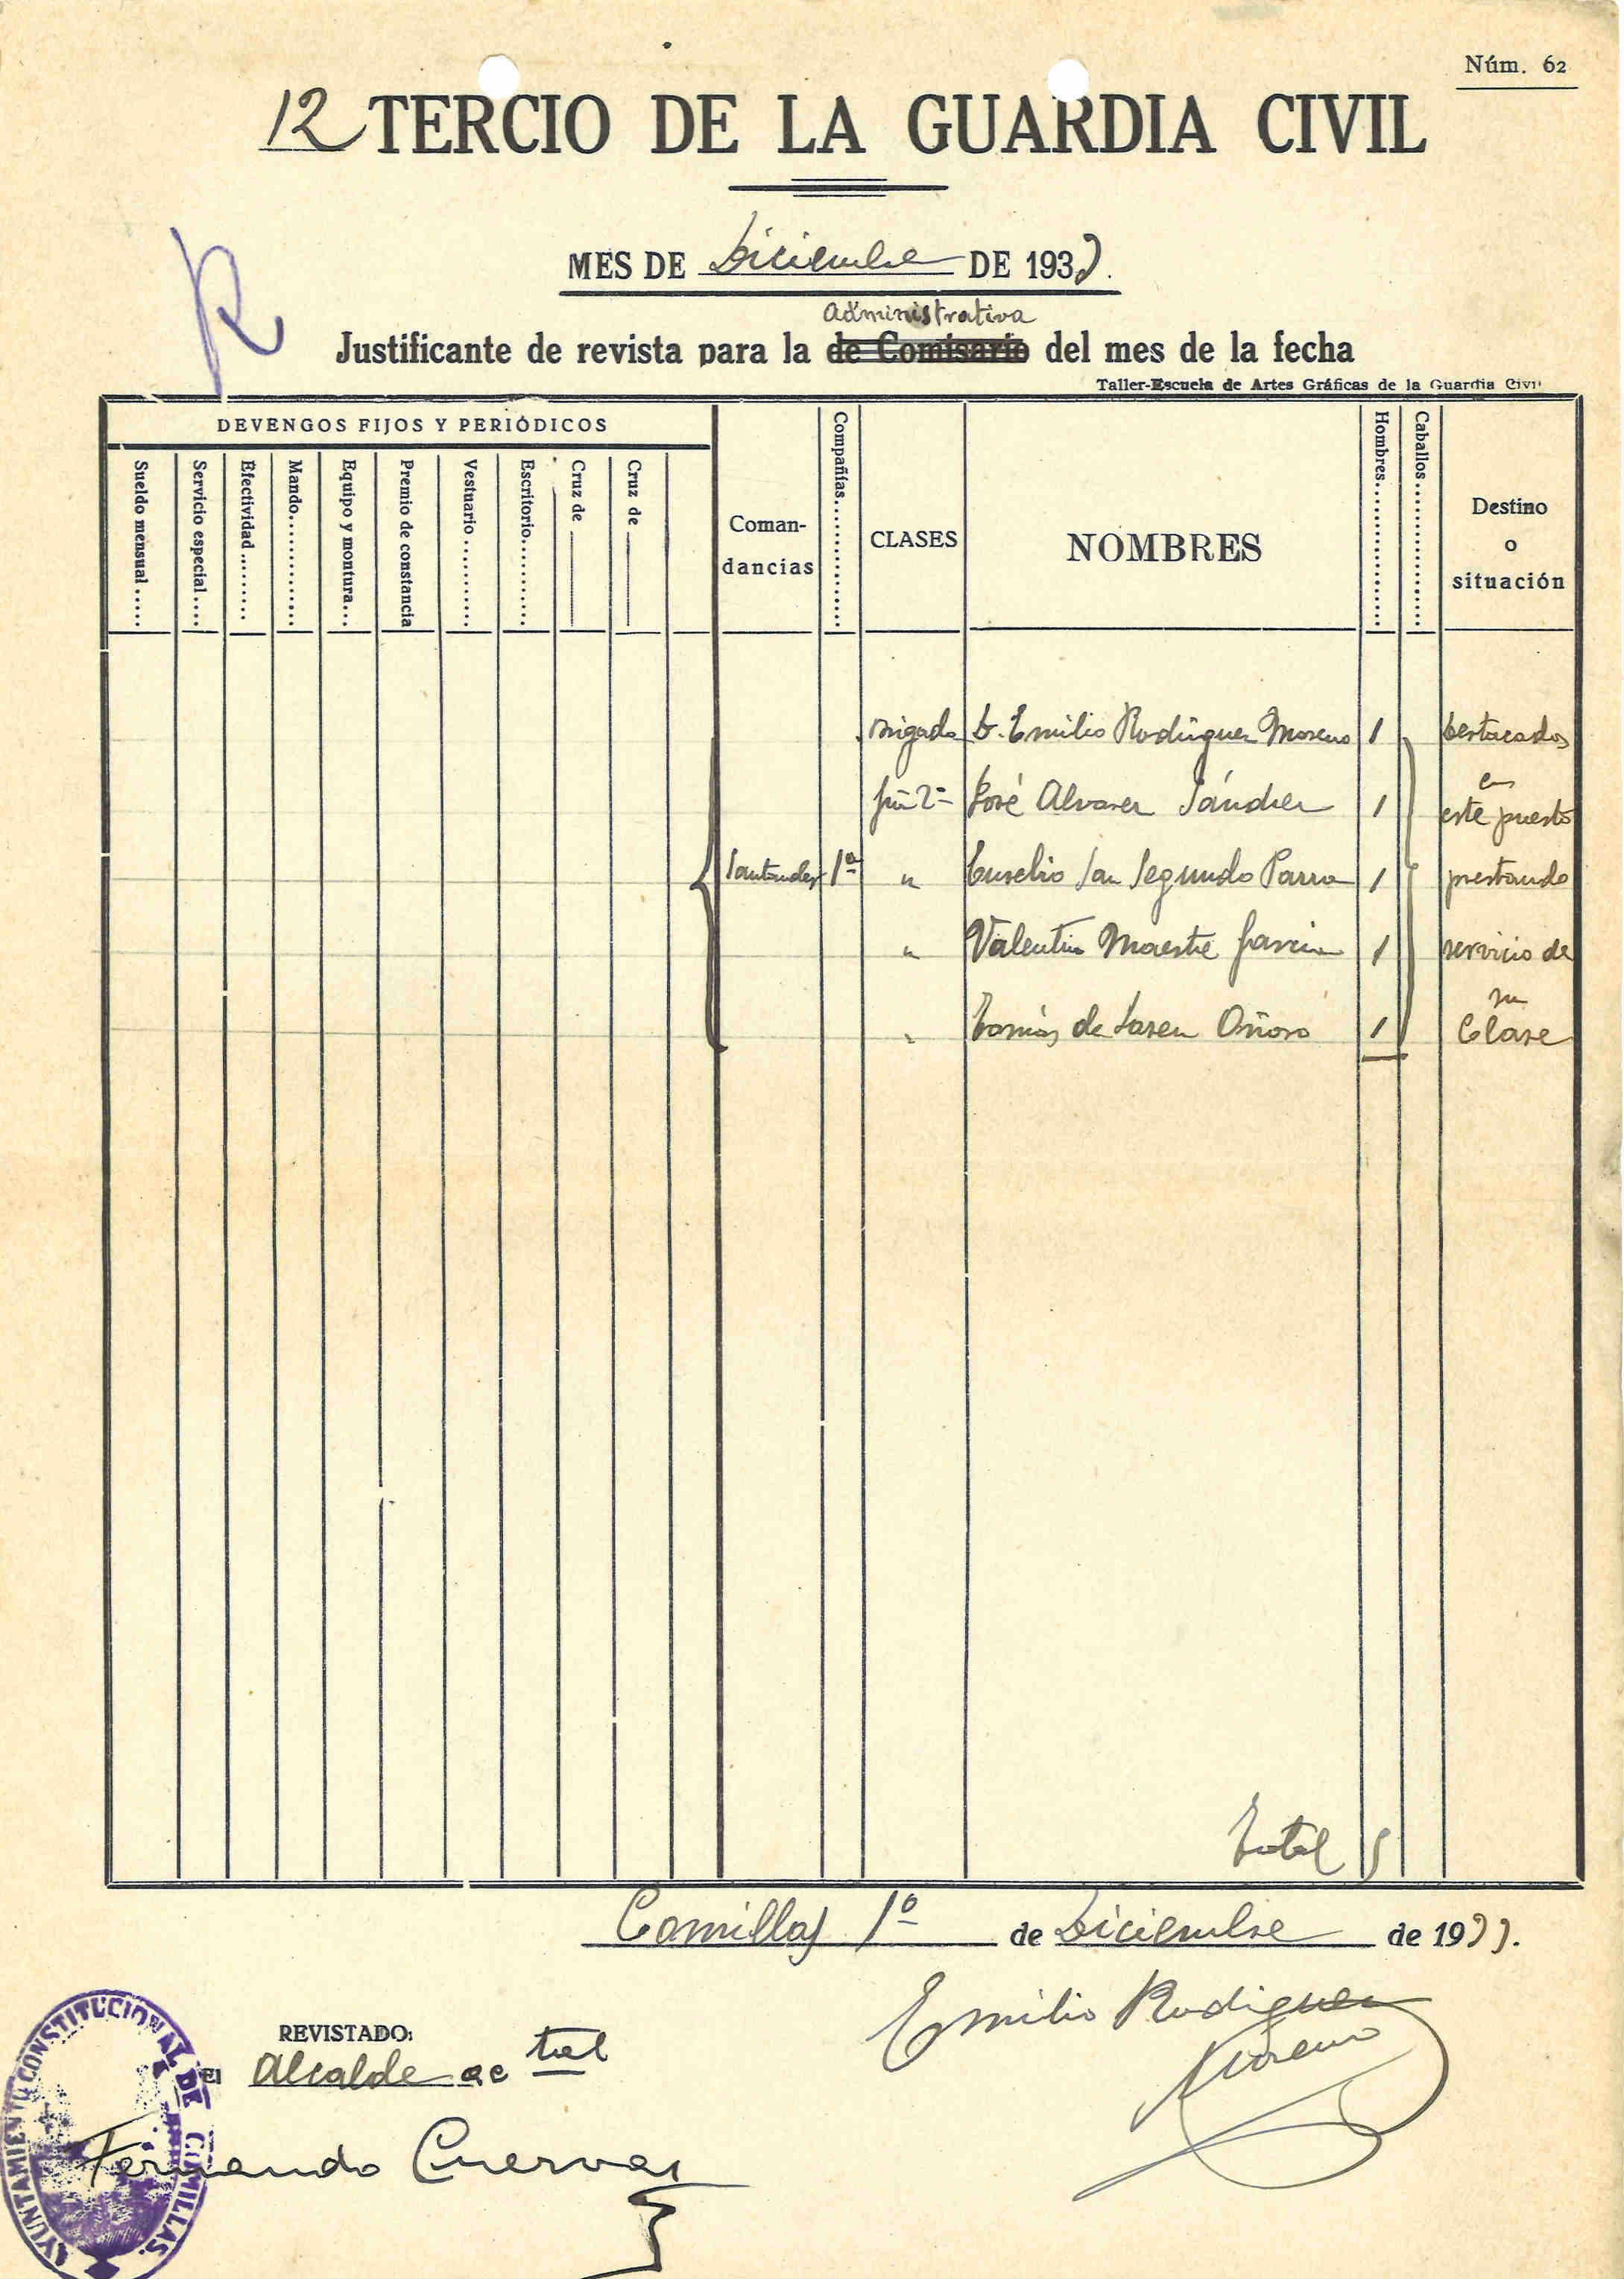 Núm. 62
12 TERCIO DE LA GUARDIA CIVIL
MES DE Diciembre DE 1933.
administrativa
Justificante de revista para la de Comisario del mes de la fecha
Taller-Escuela de Artes Gráficas de la Guardia Civil
DEVENGOS FIJOS Y PERIÓDICOS
Sueldo mensual.....
Servicio especial....
Efectividad.........
Mando............
Equipo y montura...
Premio de constancia
Vestuario..........
Escritorio..........
Cruz de
Cruz de
Coman-
dancias
Compañías............
CLASES
NOMBRES
Hombres..............
Caballos..............
Destino
o
situación
Brigada D. Emilio Rodriguez Moreno 1 destacados
José Alvarez Sánchez 1 en
este puesto
Santander 1ª " Eusebio San Segundo Parra 1 prestando
" Valentin Maestre Garcia 1 servicio de
su
" Tomás de 1 Clase
Total 5
Comillas 1º de Diciembre de 1933.
Emilio Rodriguez
Moreno
REVISTADO:
El Alcalde actal
Fernando Cuevas
AYUNTAMIENTO CONSTITUCIONAL DE COMILLAS.
R